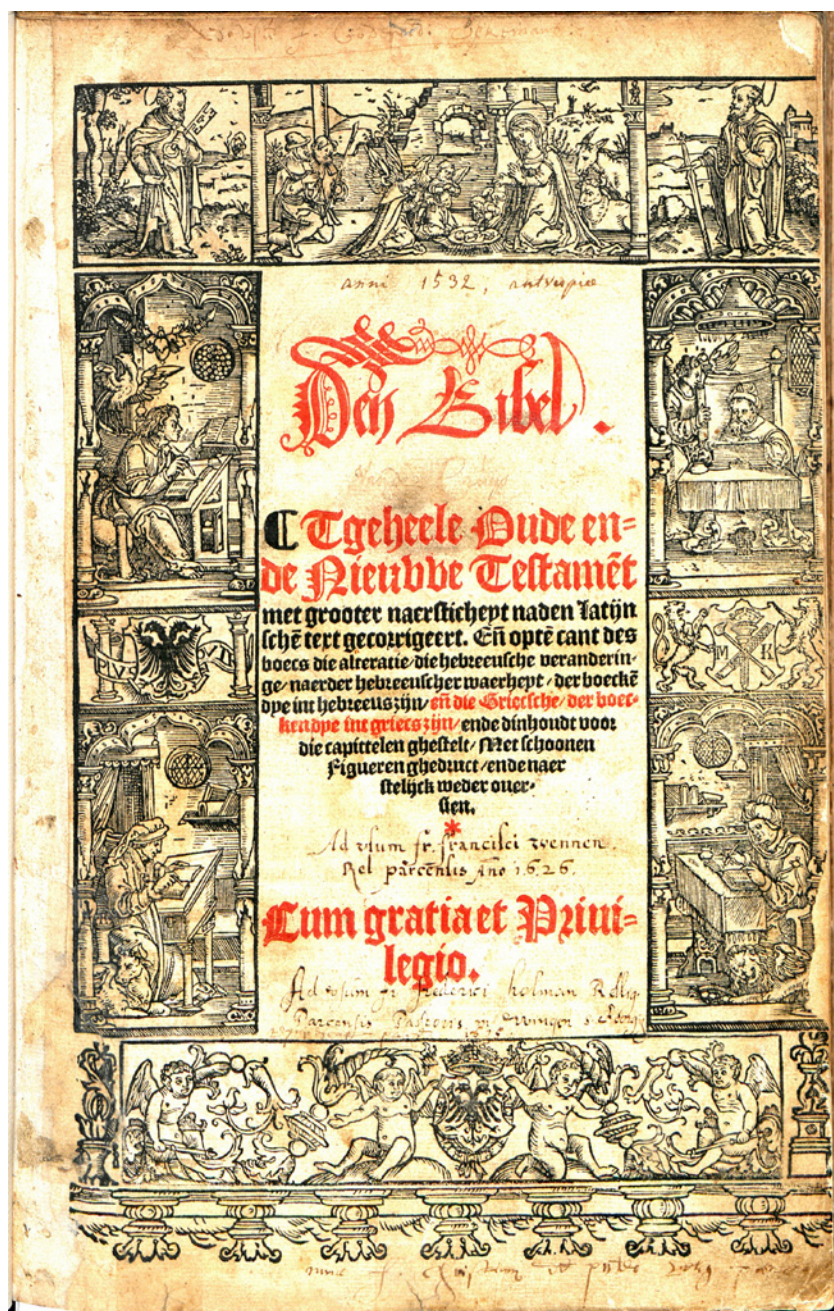 anni 1532, antverpiae
Den Bibel.
C Tgeheele Oude en=
de Nieuvve Testamēt
met grooter naersticheyt naden Latijn
schē text gecorrigeert. Eñ optē cant des
boecs die alteratie/die hebreeusche veranderin-
ge/naerder hebreeuscher waerheyt/der boeckē
dye int hebreeus zijn/eñ die Griecsche/der boec-
ken dye int griecs zijn/ende dinhoudt voor
die capittelen ghestelt/Met schoonen
Figueren ghedruct/ende naer
stelijck weder ouer-
sien.
*
Ad usum fr. francisci wennen.
Rel parcensis Año 1626.
Cum gratia et Priui=
legio.
Ad usum fr frederici holman Relig.
Parcensis Pastoris
PLVS
M K